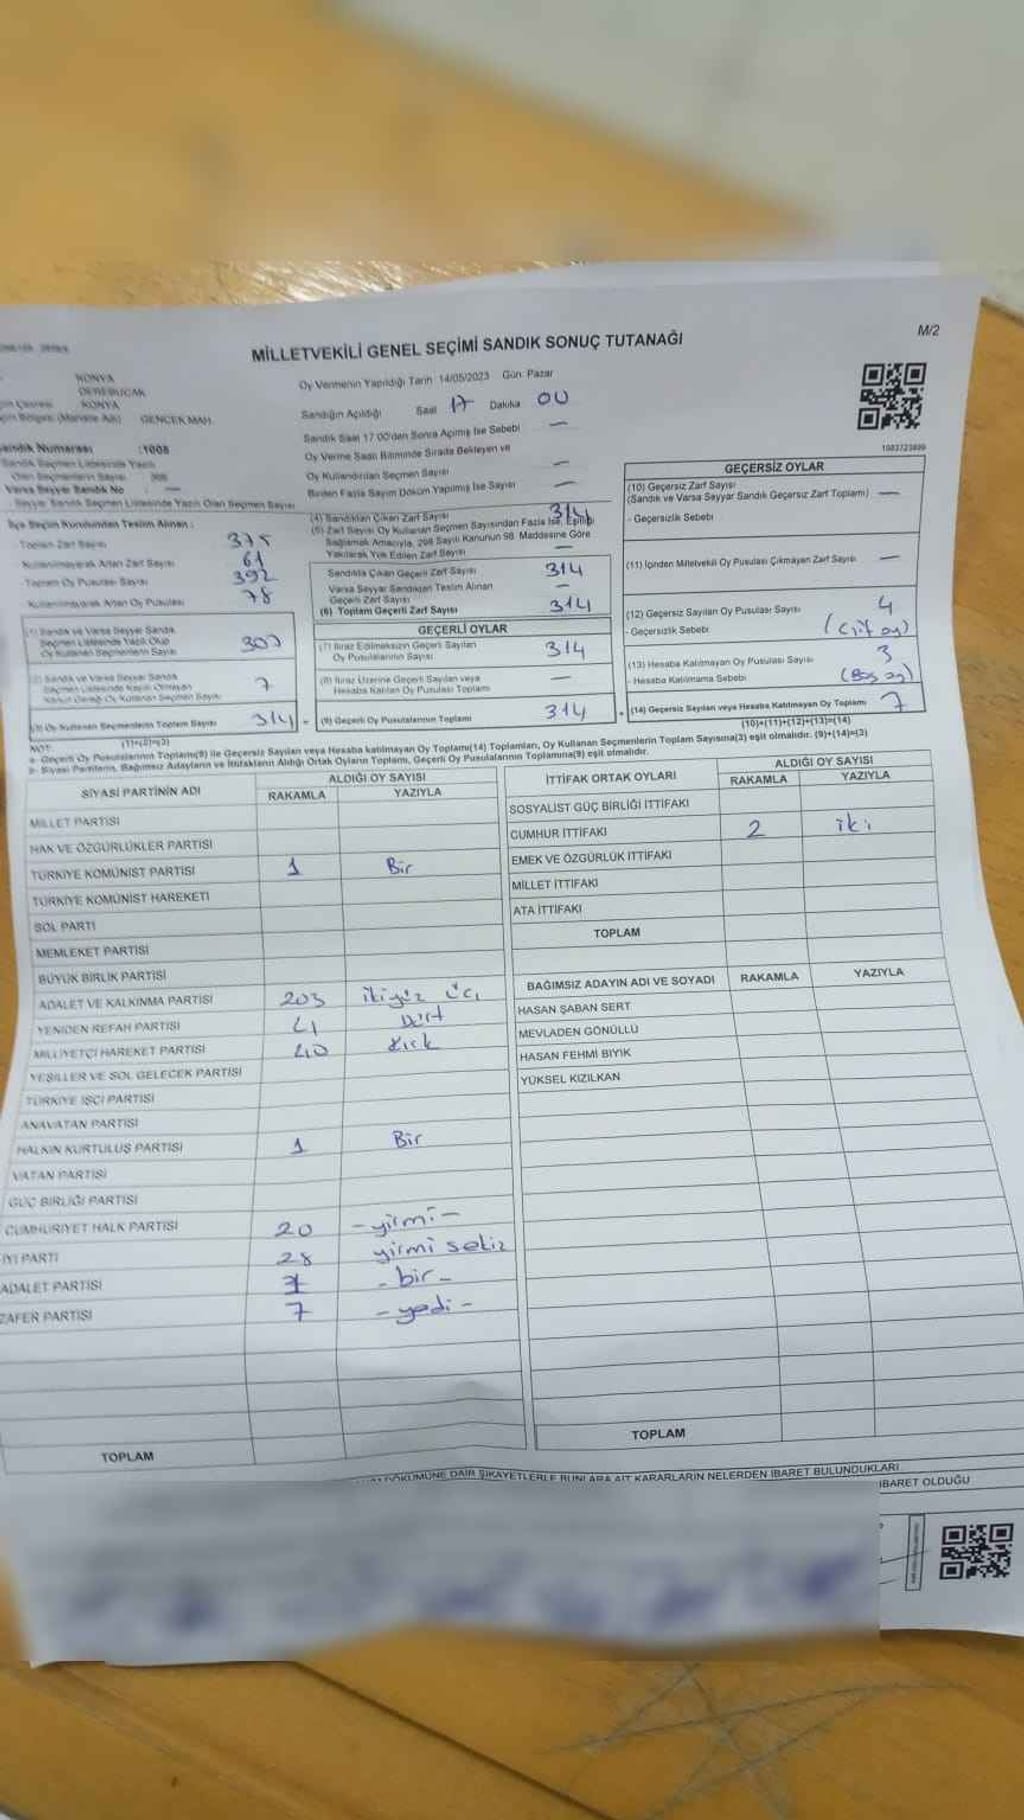 M/2
MİLLETVEKİLİ GENEL SEÇİMİ SANDIK SONUÇ TUTANAĞI
KONYA
DEREBUCAK
KONYA
GENCEK MAH.
Sandık Numarası :1008
Oy Vermenin Yapıldığı Tarih 14/05/2023 Gün: Pazar
Sandığın Açıldığı Saat 17 Dakika 00
Sandık Saat 17.00'den Sonra Açılmış İse Sebebi —
Oy Verme Saati Bitiminde Sırada Bekleyen ve
Oy Kullandırılan Seçmen Sayısı —
Birden Fazla Sayım Döküm Yapılmış İse Sayısı —
1083723899
Sandık Seçmen Listesinde Yazılı
Olan Seçmenlerin Sayısı
Varsa Seyyar Sandık No —
Seyyar Sandık Seçmen Listesinde Yazılı Olan Seçmen Sayısı
İlçe Seçim Kurulundan Teslim Alınan :
Toplam Zarf Sayısı 375
Kullanılmayarak Artan Zarf Sayısı 61
Toplam Oy Pusulası Sayısı 392
Kullanılmayarak Artan Oy Pusulası 78
(1) Sandık ve Varsa Seyyar Sandık
Seçmen Listesinde Yazılı Olup
Oy Kullanan Seçmenlerin Sayısı 307
(2) Sandık ve Varsa Seyyar Sandık
Seçmen Listesinde Kayıtlı Olmayan
Kanun Gereği Oy Kullanan Seçmen Sayısı 7
(3) Oy Kullanan Seçmenlerin Toplam Sayısı 314
(1)+(2)=(3)
(4) Sandıktan Çıkan Zarf Sayısı 314
(5) Zarf Sayısı Oy Kullanan Seçmen Sayısından Fazla İse, Eşitliği
Sağlamak Amacıyla, 298 Sayılı Kanunun 98. Maddesine Göre
Yakılarak Yok Edilen Zarf Sayısı —
Sandıkta Çıkan Geçerli Zarf Sayısı 314
Varsa Seyyar Sandıktan Teslim Alınan
Geçerli Zarf Sayısı —
(6) Toplam Geçerli Zarf Sayısı 314
GEÇERLİ OYLAR
(7) İtiraz Edilmeksizin Geçerli Sayılan
Oy Pusulalarının Sayısı 314
(8) İtiraz Üzerine Geçerli Sayılan veya
Hesaba Katılan Oy Pusulası Toplamı —
= (9) Geçerli Oy Pusulalarının Toplamı 314
GEÇERSİZ OYLAR
(10) Geçersiz Zarf Sayısı
(Sandık ve Varsa Seyyar Sandık Geçersiz Zarf Toplamı) —
- Geçersizlik Sebebi
(11) İçinden Milletvekili Oy Pusulası Çıkmayan Zarf Sayısı —
(12) Geçersiz Sayılan Oy Pusulası Sayısı 4
- Geçersizlik Sebebi (Çift oy)
(13) Hesaba Katılmayan Oy Pusulası Sayısı 3
- Hesaba Katılmama Sebebi (Boş oy)
+ (14) Geçersiz Sayılan veya Hesaba Katılmayan Oy Toplamı 7
(10)+(11)+(12)+(13)=(14)
NOT:
a- Geçerli Oy Pusulalarının Toplamı(9) ile Geçersiz Sayılan veya Hesaba katılmayan Oy Toplamı(14) Toplamları, Oy Kullanan Seçmenlerin Toplam Sayısına(3) eşit olmalıdır. (9)+(14)=(3)
b- Siyasi Partilerin, Bağımsız Adayların ve İttifakların Aldığı Ortak Oyların Toplamı, Geçerli Oy Pusulalarının Toplamına(9) eşit olmalıdır.
SİYASİ PARTİNİN ADI ALDIĞI OY SAYISI
RAKAMLA YAZIYLA
MİLLET PARTİSİ
HAK VE ÖZGÜRLÜKLER PARTİSİ
TÜRKİYE KOMÜNİST PARTİSİ 1 Bir
TÜRKİYE KOMÜNİST HAREKETİ
SOL PARTİ
MEMLEKET PARTİSİ
BÜYÜK BİRLİK PARTİSİ
ADALET VE KALKINMA PARTİSİ 203 ikiyüz üç
YENİDEN REFAH PARTİSİ 4 Dört
MİLLİYETÇİ HAREKET PARTİSİ 40 Kırk
YEŞİLLER VE SOL GELECEK PARTİSİ
TÜRKİYE İŞÇİ PARTİSİ
ANAVATAN PARTİSİ
HALKIN KURTULUŞ PARTİSİ 1 Bir
VATAN PARTİSİ
GÜÇ BİRLİĞİ PARTİSİ
CUMHURİYET HALK PARTİSİ 20 -yirmi-
İYİ PARTİ 28 yirmi sekiz
ADALET PARTİSİ 1 -bir-
ZAFER PARTİSİ 7 -yedi-
TOPLAM
İTTİFAK ORTAK OYLARI ALDIĞI OY SAYISI
RAKAMLA YAZIYLA
SOSYALİST GÜÇ BİRLİĞİ İTTİFAKI
CUMHUR İTTİFAKI 2 iki
EMEK VE ÖZGÜRLÜK İTTİFAKI
MİLLET İTTİFAKI
ATA İTTİFAKI
TOPLAM
BAĞIMSIZ ADAYIN ADI VE SOYADI RAKAMLA YAZIYLA
HASAN ŞABAN SERT
MEVLADEN GÖNÜLLÜ
HASAN FEHMİ BIYIK
YÜKSEL KIZILKAN
TOPLAM
DÖKÜMÜNE DAİR ŞİKAYETLERLE BUNLARA AİT KARARLARIN NELERDEN İBARET BULUNDUKLARI
İBARET OLDUĞU